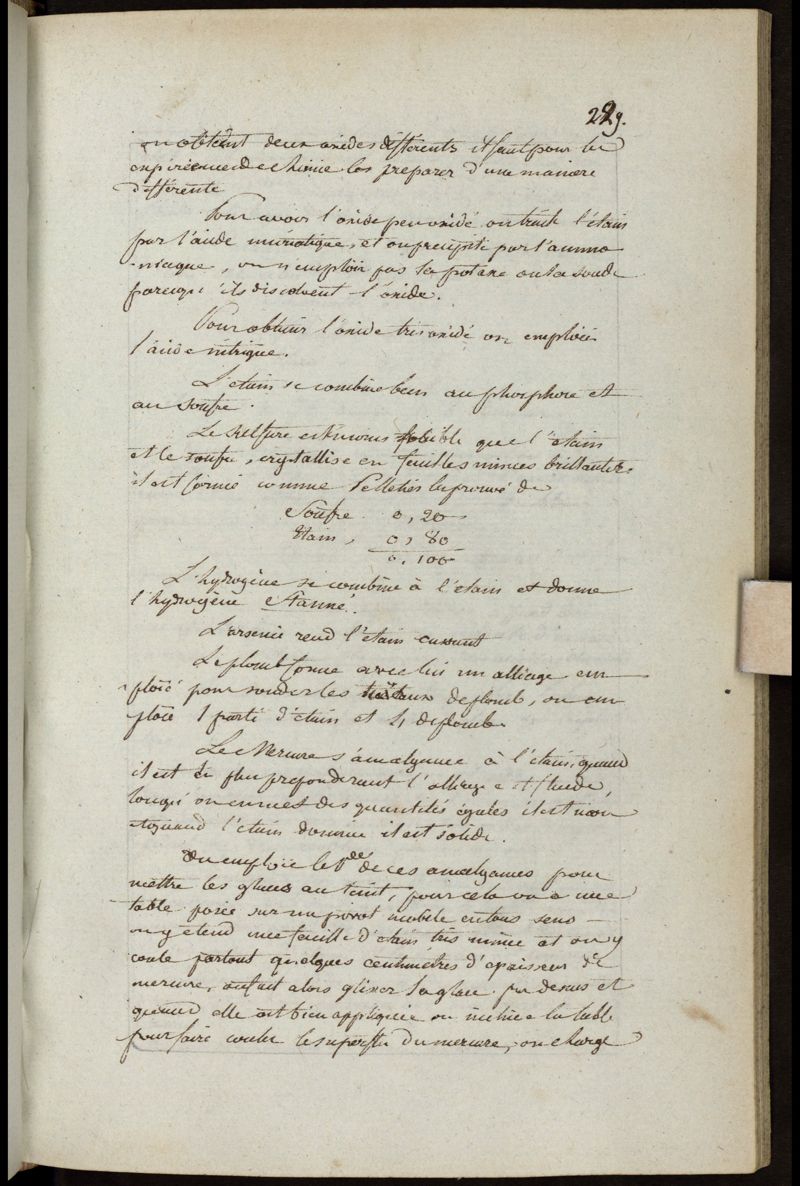 229.
on obtient deux oxides différents il faut pour les
expériences de chimie les preparer d'une maniere
différente
Pour avoir l'oxide peu oxidé on traite l'étain
par l'acide muriatique, et on precipite par l'ammo
niaque, on n'emploie pas la potasse ou la soude
parcequ'ils dissolvent l'oxide.
Pour obtenir l'oxide tres oxidé on emploie
l'acide nitrique.
L'etain se combine bien au phosphore et
au soufre.
Le sulfure est moins fusible que l'etain
et le soufre, crystallise en feuilles minces brillantes
il est formé comme Pelletier l'a prouvé de
Soufre 0,20
Etain, 0,80
0,100
L'hydrogène se combine à l'etain et donne
l'hydrogène étanné.
L'arsenic rend l'etain cassant
Le plomb forme avec lui un alliage em
ploié pour souder les tuïaux de plomb, on em
ploie 1 partie d'étain et 4 de plomb
Le Mercure s'amalgame à l'étain, quand
il est en plus preponderant l'alliage est fluide,
lorsqu'on en met des quantités égales il est mou
et quand l'étain domine il est solide.
On emploie le 1er de ces amalgames pour
mettre les glaces au teint, pour cela on a une
table posée sur un pivot mobile en tous sens
on y etend une feuille d'étain très mince et on y
coule partout quelques centimètres d'epaisseur de
mercure, on fait alors glisser la glace par dessus et
quand elle est bien appliquée on incline la table
pour faire couler le superflu du mercure, on charge